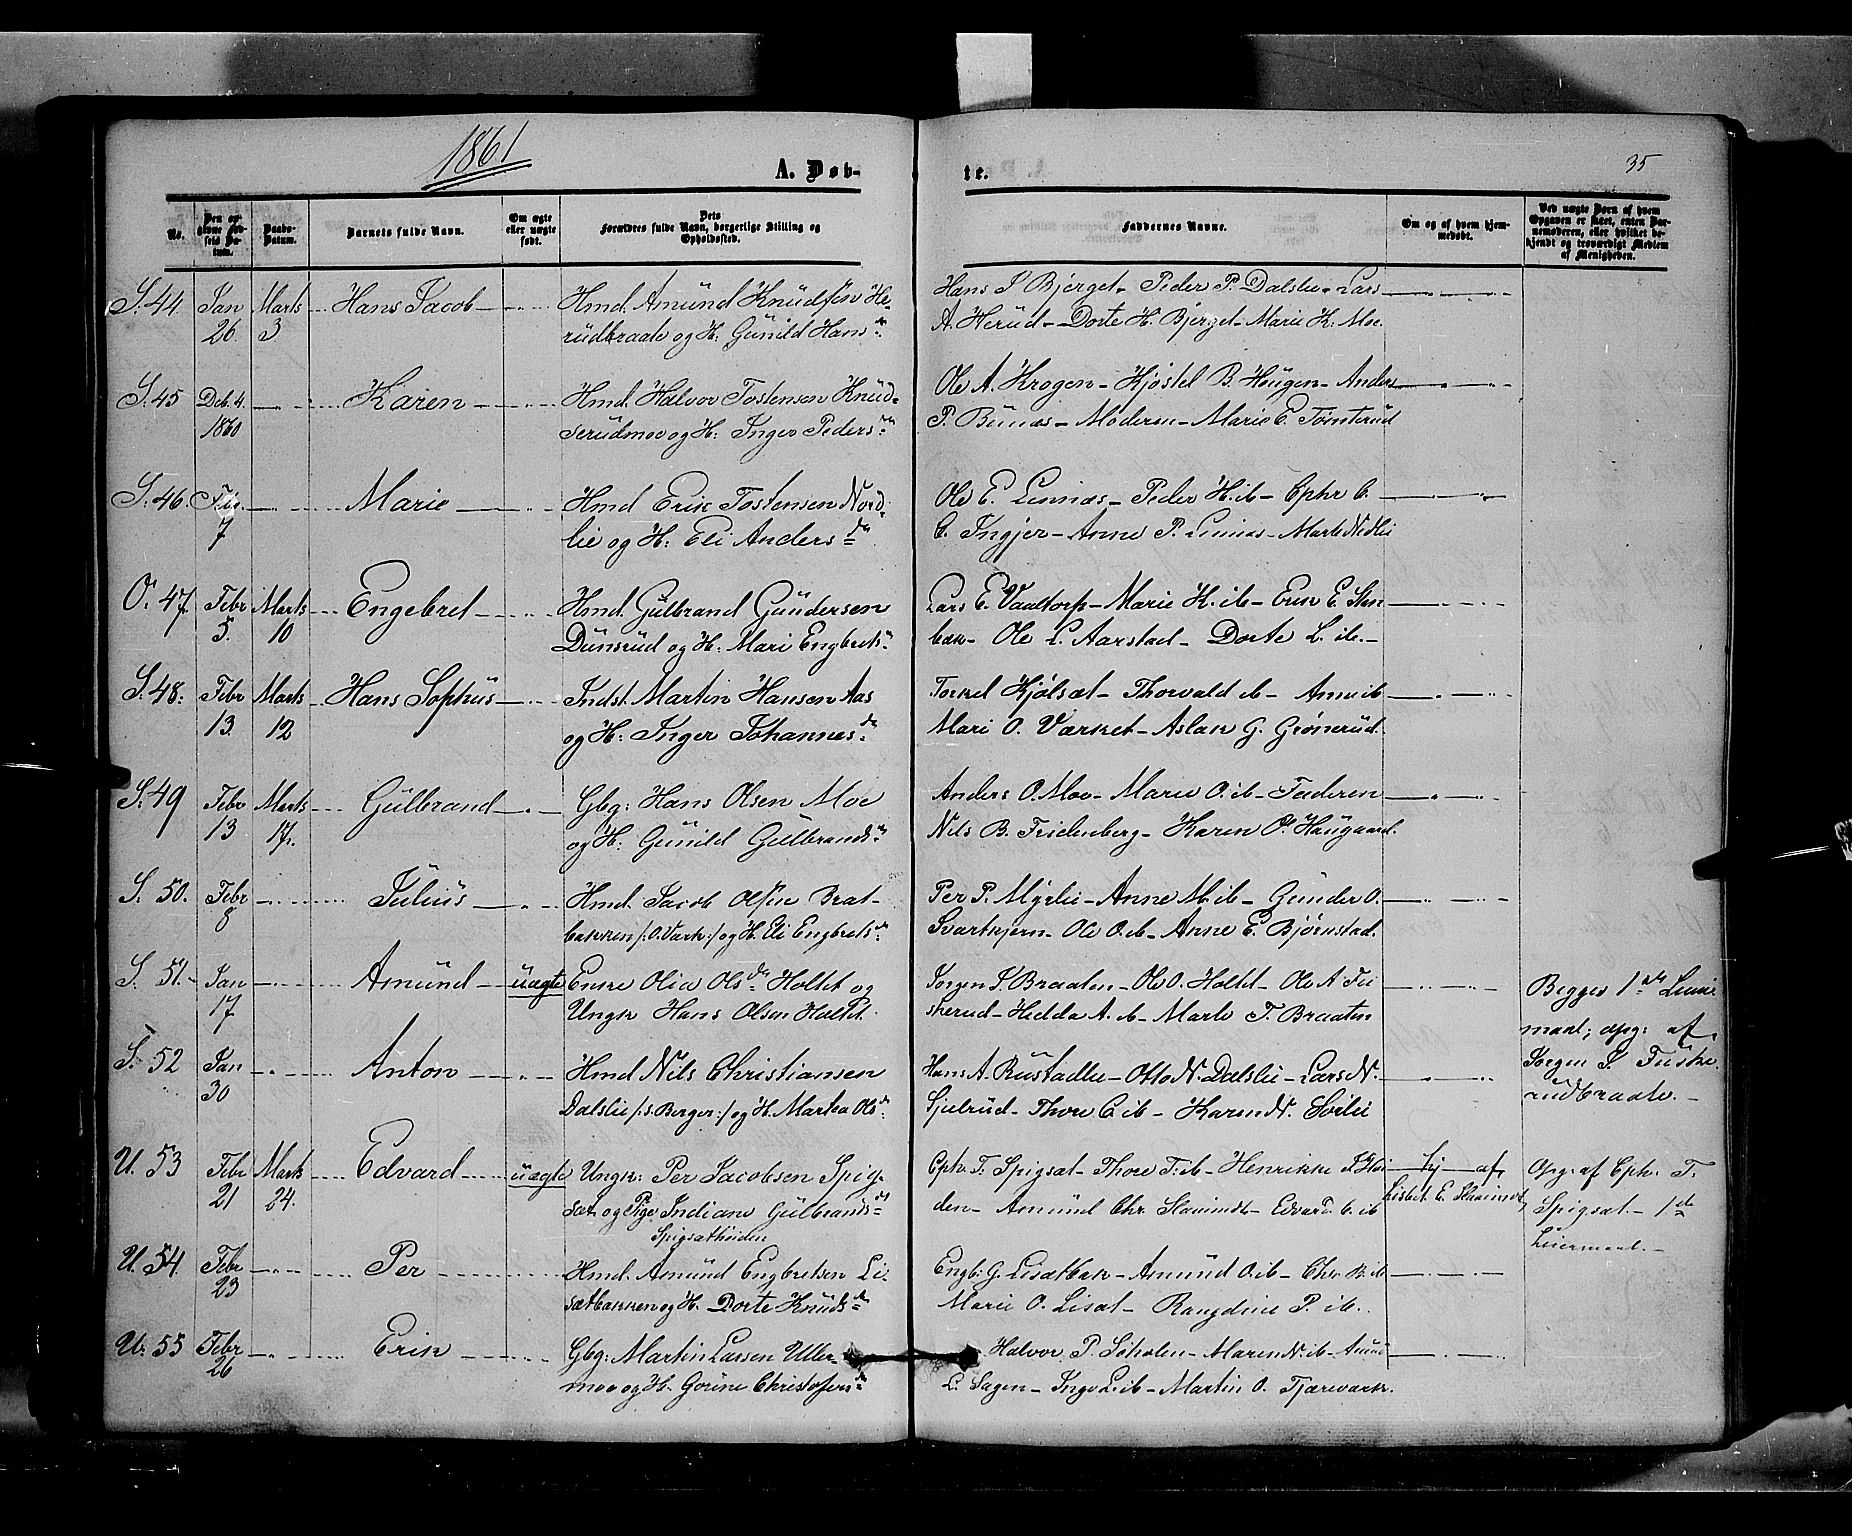 1861
A. Døb-
te.
35
No.
Den opgivne Fødsels Datum.
Daabs-Datum.
Barnets fulde Navn.
Om ægte eller uægte født.
Dets Forældres fulde Navn, borgerlige Stilling og Opholdssted.
Faddernes Navne.
Om og af hvem hjemmedøbt.
Ved uægte Børn af hvem Opgaven er skeet, enten Barnemoderen, eller hvilket bekjendt og troværdigt Medlem af Menigheden.
S. 44. Jan 26. Marts 3 Hans Jacob Hmd. Amund Knudsen He-
rudbraate og H: Gunild Hansd.
Hans J Bjerget - Peder P. Dalslie - Lars
A. Herud - Dorte H. Bjerget - Marie K. Moe.
S. 45 Deb. 4. 1860 Karen Hmd. Halvor Tostensen Knud-
serudmoe og H: Inger Pedersd.
Ole A. Krogen - Kjøstel B. Haugen - Anders
P. Bunæs - Moderen - Marie E. Tømterud
S. 46. 7 Marie Hmd Erik Tostensen Nord-
lie og H: Eli Andersd.
Ole E. Linnæs - Peder H. ib - Cphr C.
C. Ingjer - Anne P. Linnæs - Marte N. Dlie
O. 47. Febr 5. Marts 10 Engebret Hmd. Gulbrand Gundersen
Dunsrud og H: Mari Engbretsd.
Lars E. Vaaltorp - Marie H. ib - Erik E. Sten
bæk - Ole L. Aarstad - Dorte L. ib. -
S. 48. Febr 13. Marts 12 Hans Sophus Indst. Martin Hansen Aas
og H: Inger Johannesd.
Torkel Kjølsæt - Thorvald ib - Anne ib
Mari O. Værket - Aslak G. Grønerud.
S. 49 Febr 13 Marts 17. Gulbrand Gbg: Hans Olsen Moe
og H: Gunild Gulbrandsd.
Anders O. Moe - Marie O. ib - Faderen
Nils B. Fridenberg - Karen O. Haugaard.
S. 50. Febr 8 Julius Hmd. Jacob Olsen Brat-
bakken /: O. Værk :/ og H. Eli Engbretsd.
Per P. Myrlie - Anne M. ib - Gunder O.
Svartkjern - Ole O. ib - Anne E. Bjørnstad.
S. 51. Jan 17 Amund uægte Enke Olia Olsd. Holtet og
Ungk Hans Olsen Holtet.
Jørgen J. Braaten - Ole O. Holtet - Ole A Fu
skerud - Hedda A. ib - Marte T. Braaten
Begges 1ste Leier
maal; opg: af
Jørgen J. Fuske-
rudbraate. -
S. 52 Jan 30 Anton Hmd Nils Christiansen
Dalslie /: s. Berger :/ og H. Martea Olsd.
Hans A. Rustadlie - Otto N. Dalslie - Lars N.
Sjulrud - Thore C. ib - Karen N. Sørlie
U. 53 Febr 21 Marts 24. Edvard uægte Ungk: Per Jacobsen Spig-
sæt og Pige Indiane Gulbrandsd.
Spigsætheiden
Cphr. T. Spigsæt - Thore T. ib - Henrikke
den - Amund Chr. - Edvard C. ib
hj af
Lisbet E.
Opg: af Cphr. T.
Spigsæt - 1ste
Leiermaal. -
U. 54. Febr 23 Per Hmd. Amund Engbretsen Li-
sætbakken og H. Dorte Knudsd.
Engb: G. Lisætbak - Amund O. ib - Chr. B. ib
Marie O. Lisæt - Rangdine P. ib.
U. 55 Febr 26 Erik Gbg: Martin Larsen Uller-
moe og H. Gorine Christofersd.
Halvor P. Søholen - Maren N. ib -
L. Sagen - Inge L. ib - Martin O. Tjæreværk.